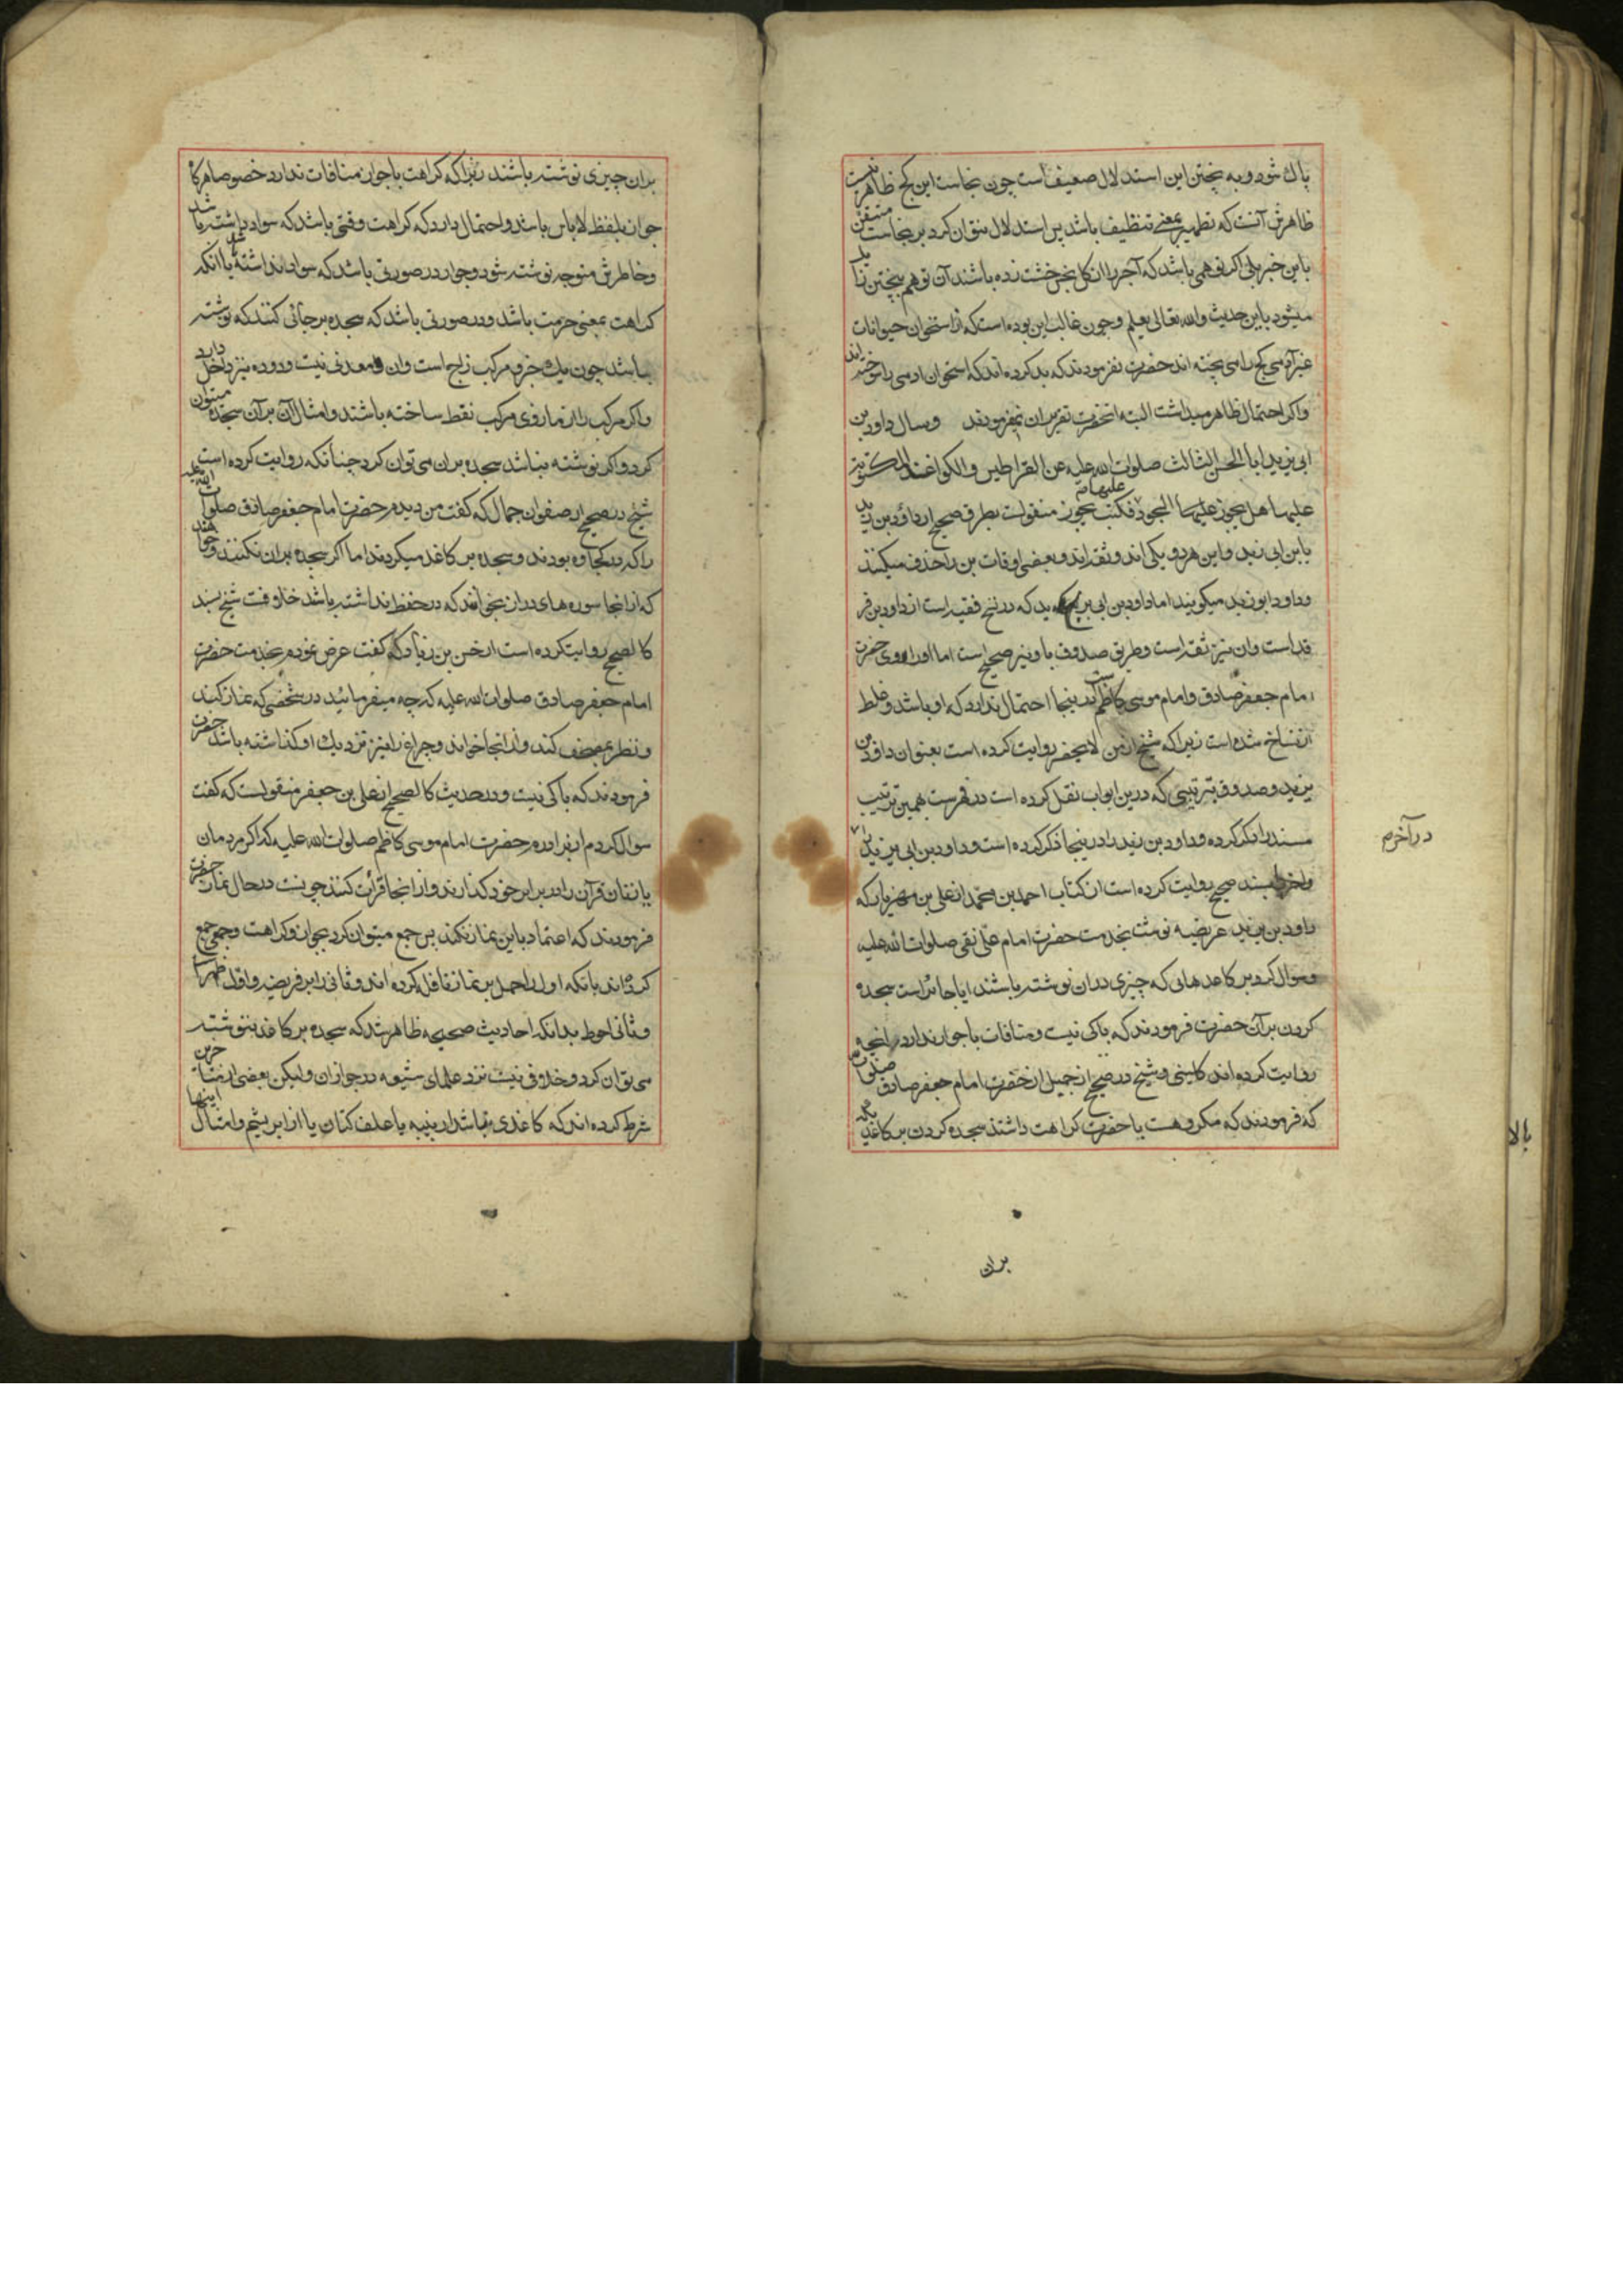 پاك شود و به پختن این استدلال ضعیف است چون نجاست این کچ ظاهر نیست
ظاهرش آنست که تطهیر بمعنی تنظیف باشد پس استدلال نتوان کرد بر نجاست
باین خبر بلی اگر توهمی باشد که آجر را از کل نجس خشت زده باشند آن توهم بپختن زایل
میشود باین حدیث والله تعالی یعلم و چون غالب این بوده است که از استخوان حیوانات
غیر آدمی کچ را می پخته اند حضرت نفرمودند که بد کرده اند که استخوان ادمی را سوخته اند
واکر احتمال ظاهر میداشت البته انحضرت تقریر ان نمیفرمودند وسال داود بن
ابی یزید ابا الحسن الثالث صلوات الله علیه عن القراطیس والکواغذ المکتوبة
علیها هل یجوز علیها السجود فکتب یجوز منقولست بطرق صحیح از داود بن یزید
یا بن ابی زید و این هر دو یکی اند و ثقه اند و بعضی اوقات بن را حذف میکنند
و داود ابو زید میکویند اما داود بن ابی یزید که در نسخ فقیه است از داود بن فر
قد است وان نیز ثقه است و طریق صدوق باو نیز صحیح است اما او راوی حضرت
امام جعفر صادق و امام موسی کاظم است در اینجا احتمال ندارد که او باشد و غلط
از نساخ شده است زیرا که شیخ از من لا یحضر روایت کرده است بعنوان داود بن
یزید و صدوق بترتیبی که درین ابواب نقل کرده است در فهرست همین ترتیب
مسند را ذکر کرده و داود بن زید را در اینجا ذکر کرده است و داود بن ابی یزید را
در آخر هم
و اخر بسند صحیح روایت کرده است از کتاب احمد بن محمد از علی بن مهزیار که
داود بن یزید عریضه نوشت بخدمت حضرت امام علی نقی صلوات الله علیه
وسوال کرد بر کاغدهائی که چیزی دران نوشته باشند ایا جائز است سجده
کردن بر آن حضرت فرمودند که باکی نیست و منافات با جواز ندارد انچه
روایت کرده اند کلینی و شیخ در صحیح از جمیل از حضرت امام جعفر صادق صلوات
که فرمودند که مکروهست یا حضرت کراهت داشتند سجده کردن بر کاغدی که
بران
بالا
بران چیزی نوشته باشند زیرا که کراهت با جواز منافات ندارد خصوصا هرگاه
جواز بلفظ لاباس باشد و احتمال دارد که کراهت وقتی باشد که سواد داشته باشد
و خاطرش متوجه نوشته شود و جواز در صورتی باشد که سواد نداشته باشد یا آنکه
کراهت بمعنی حرمت باشد و در صورتی باشد که سجده بر جائی کنند که نوشته
باشد چون یك جزو مرکب زاج است وان معدنی نیست و دوده نیز داخل دارد
و اکر مرکب را از مازوی مرکب نقط ساخته باشند و امثال آن بر آن سجده میتوان
کرد و اکر نوشته نباشد سجده بران می توان کرد چنانکه روایت کرده است
شیخ در صحیح از صفوان جمال که کفت من دیدم حضرت امام جعفر صادق صلوات الله علیه
را که در کجاوه بودند و سجده بر کاغد میکردند اما اکر سجده بران نکنند و خواهند
که از انجا سوره های دراز بخوانند که در حفظ نداشته باشد خلافست شیخ بسند
کالصحیح روایت کرده است از حسن بن زیاد که کفت عرض نمودم بخدمت حضرت
امام جعفر صادق صلوات الله علیه که چه میفرمائید در شخصی که نماز کند
و نظر بمصحف کند و از انجا خواند و چراغ را نیز نزدیك او کذاشته باشند حضرت
فرمودند که باکی نیست و در حدیث کالصحیح از علی بن جعفر منقولست که کفت
سوال کردم از برادرم حضرت امام موسی کاظم صلوات الله علیه که اکر مردمان
یا زنان قرآن را در برابر خود کذارند و از انجا قرائت کنند چونست در حال نماز حضرت
فرمودند که اعتماد باین نماز نکنند پس جمع میتوان کرد بجواز و کراهت و جمعی جمع
کرده اند بانکه اول را حمل بر نماز نافله کرده اند و ثانی را بر فریضه و اول اظهر است
و ثانی احوط بدانکه احادیث صحیحه ظاهر شد که سجده بر کاغد ننوشته
می توان کرد و خلافی نیست نزد علمای شیعه در جواز ان ولیکن بعضی از متاخرین
شرط کرده اند که کاغدی نباشد از پنبه یا علف کتان یا از ابریشم و امثال اینها